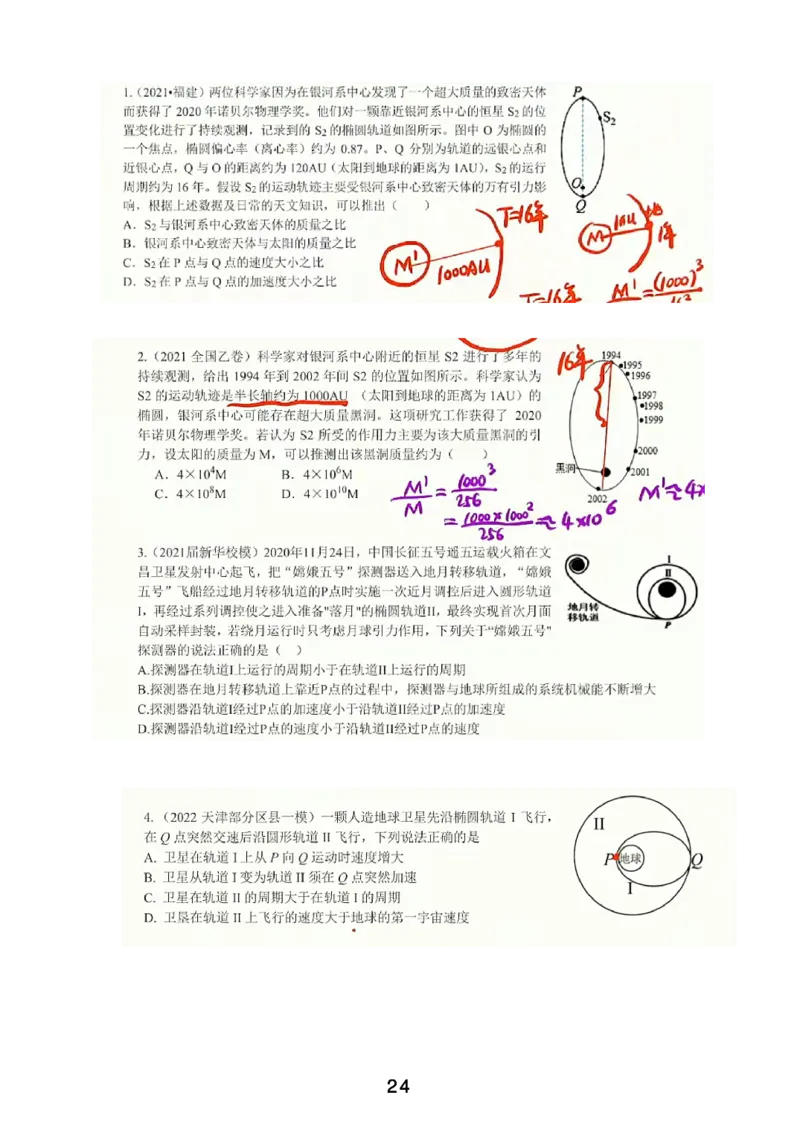 1.（2021•福建）两位科学家因为在银河系中心发现了一个超大质量的致密天体
而获得了 2020 年诺贝尔物理学奖。他们对一颗靠近银河系中心的恒星 S₂ 的位
置变化进行了持续观测，记录到的 S₂ 的椭圆轨道如图所示。图中 O 为椭圆的
一个焦点，椭圆偏心率（离心率）约为 0.87。P、Q 分别为轨道的远银心点和
近银心点，Q 与 O 的距离约为 120AU（太阳到地球的距离为 1AU），S₂ 的运行
周期约为 16 年。假设 S₂ 的运动轨迹主要受银河系中心致密天体的万有引力影
响，根据上述数据及日常的天文知识，可以推出（　　）
A．S₂ 与银河系中心致密天体的质量之比
B．银河系中心致密天体与太阳的质量之比
C．S₂ 在 P 点与 Q 点的速度大小之比
D．S₂ 在 P 点与 Q 点的加速度大小之比
P
S₂
O
Q
T=16年
M'
1000AU
M
1AU
地
1年
T=16年
M'=(1000)³
2.（2021 全国乙卷）科学家对银河系中心附近的恒星 S2 进行了多年的
持续观测，给出 1994 年到 2002 年间 S2 的位置如图所示。科学家认为
S2 的运动轨迹是半长轴约为 1000AU （太阳到地球的距离为 1AU）的
椭圆，银河系中心可能存在超大质量黑洞。这项研究工作获得了 2020
年诺贝尔物理学奖。若认为 S2 所受的作用力主要为该大质量黑洞的引
力，设太阳的质量为 M，可以推测出该黑洞质量约为（　　）
A．4×10⁴M　　B．4×10⁶M
C．4×10⁸M　　D．4×10¹⁰M
16年
1994
1995
1996
1997
1998
1999
2000
2001
2002
黑洞
M'/M = 1000³/256
= 1000×1000²/256 ≈ 4×10⁶
M'≈4×
3.（2021届新华校模）2020年11月24日，中国长征五号遥五运载火箭在文
昌卫星发射中心起飞，把“嫦娥五号”探测器送入地月转移轨道，“嫦娥
五号”飞船经过地月转移轨道的P点时实施一次近月调控后进入圆形轨道
I，再经过系列调控使之进入准备"落月"的椭圆轨道II，最终实现首次月面
自动采样封装，若绕月运行时只考虑月球引力作用，下列关于“嫦娥五号"
探测器的说法正确的是（　）
A.探测器在轨道I上运行的周期小于在轨道II上运行的周期
B.探测器在地月转移轨道上靠近P点的过程中，探测器与地球所组成的系统机械能不断增大
C.探测器沿轨道I经过P点的加速度小于沿轨道II经过P点的加速度
D.探测器沿轨道I经过P点的速度小于沿轨道II经过P点的速度
I
II
地月转
移轨道
P
4. （2022 天津部分区县一模）一颗人造地球卫星先沿椭圆轨道 I 飞行，
在 Q 点突然交速后沿圆形轨道 II 飞行，下列说法正确的是
A. 卫星在轨道 I 上从 P 向 Q 运动时速度增大
B. 卫星从轨道 I 变为轨道 II 须在 Q 点突然加速
C. 卫星在轨道 II 的周期大于在轨道 I 的周期
D. 卫星在轨道 II 上飞行的速度大于地球的第一宇宙速度
II
P
地球
Q
I
24